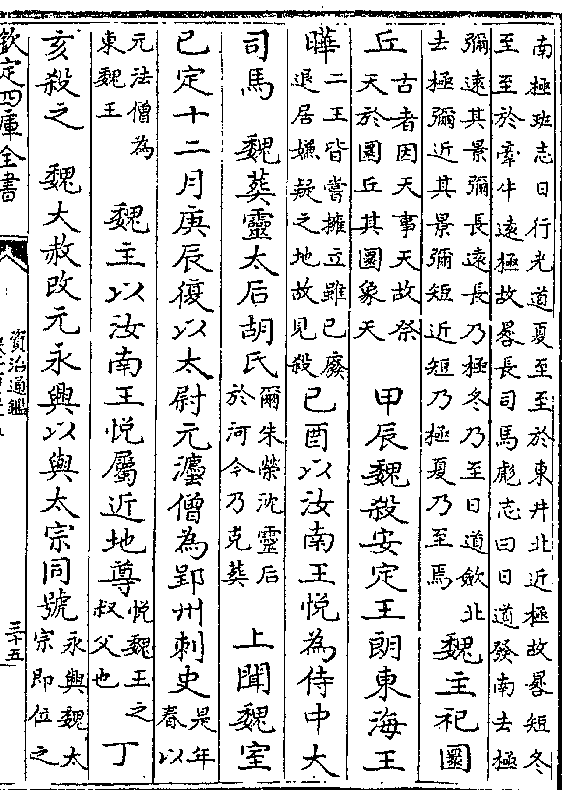 南極班志日行光道夏至至於東井北近極故晷短冬
至至於牽牛遠極故晷長司馬彪志曰日道發南去極
彌遠其景彌長遠長乃極冬乃至日道斂北
去極彌近其景彌短近短乃極夏乃至焉
魏主祀圜
丘古者因天事天故祭
天於圜丘其圜象天
甲辰魏殺安定王朗東海王
曄二王皆嘗擁立雖已廢
退居嫌疑之地故見殺
已酉以汝南王悅為侍中大
司馬 魏葬靈太后胡氏爾朱榮沈靈后
於河今乃克葬
上聞魏室
已定十二月庚辰復以太尉元灋僧為郢州刺史是年
春以
元法僧為
東魏王
魏主以汝南王悅屬近地尊悅魏王之
叔父也
丁
亥殺之 魏大赦改元永興以與太宗同號永興魏太
宗即位之
欽定四庫全書
資治通鑑
三十五